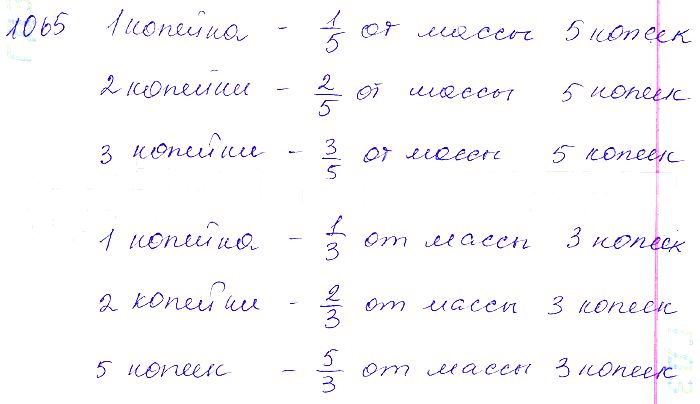 1065 1 копейка - 1/5 от массы 5 копеек
2 копейки - 2/5 от массы 5 копеек
3 копейки - 3/5 от массы 5 копеек
1 копейка - 1/3 от массы 3 копеек
2 копейки - 2/3 от массы 3 копеек
5 копеек - 5/3 от массы 3 копеек